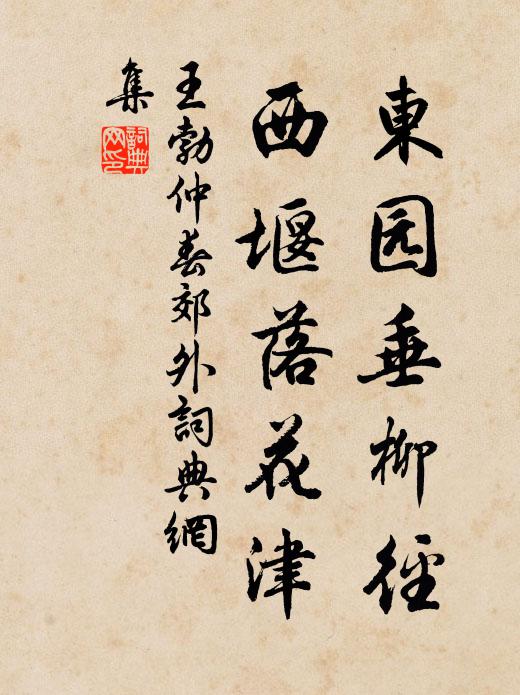 東园垂柳徑
西堰落花津
王勃仲春郊外詞典網
集
詞典网印